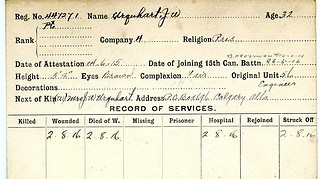 Reg. No. 447271 Name Urquhart J W Age 32
Pte
Rank Company A Religion Pres
Date of Attestation 14.6.15 Date of joining 15th Can. Battn.
Height 5'6" Eyes Brown Complexion Fair Original Unit 56
Decorations Engineer
Next of Kin (W) Mrs J W Urquhart Address P.O. Box Calgary Alta
RECORD OF SERVICES.
Killed Wounded Died of W. Missing Prisoner Hospital Rejoined Struck Off
2-8-16 2-8-16 2.8.16 2-8-16